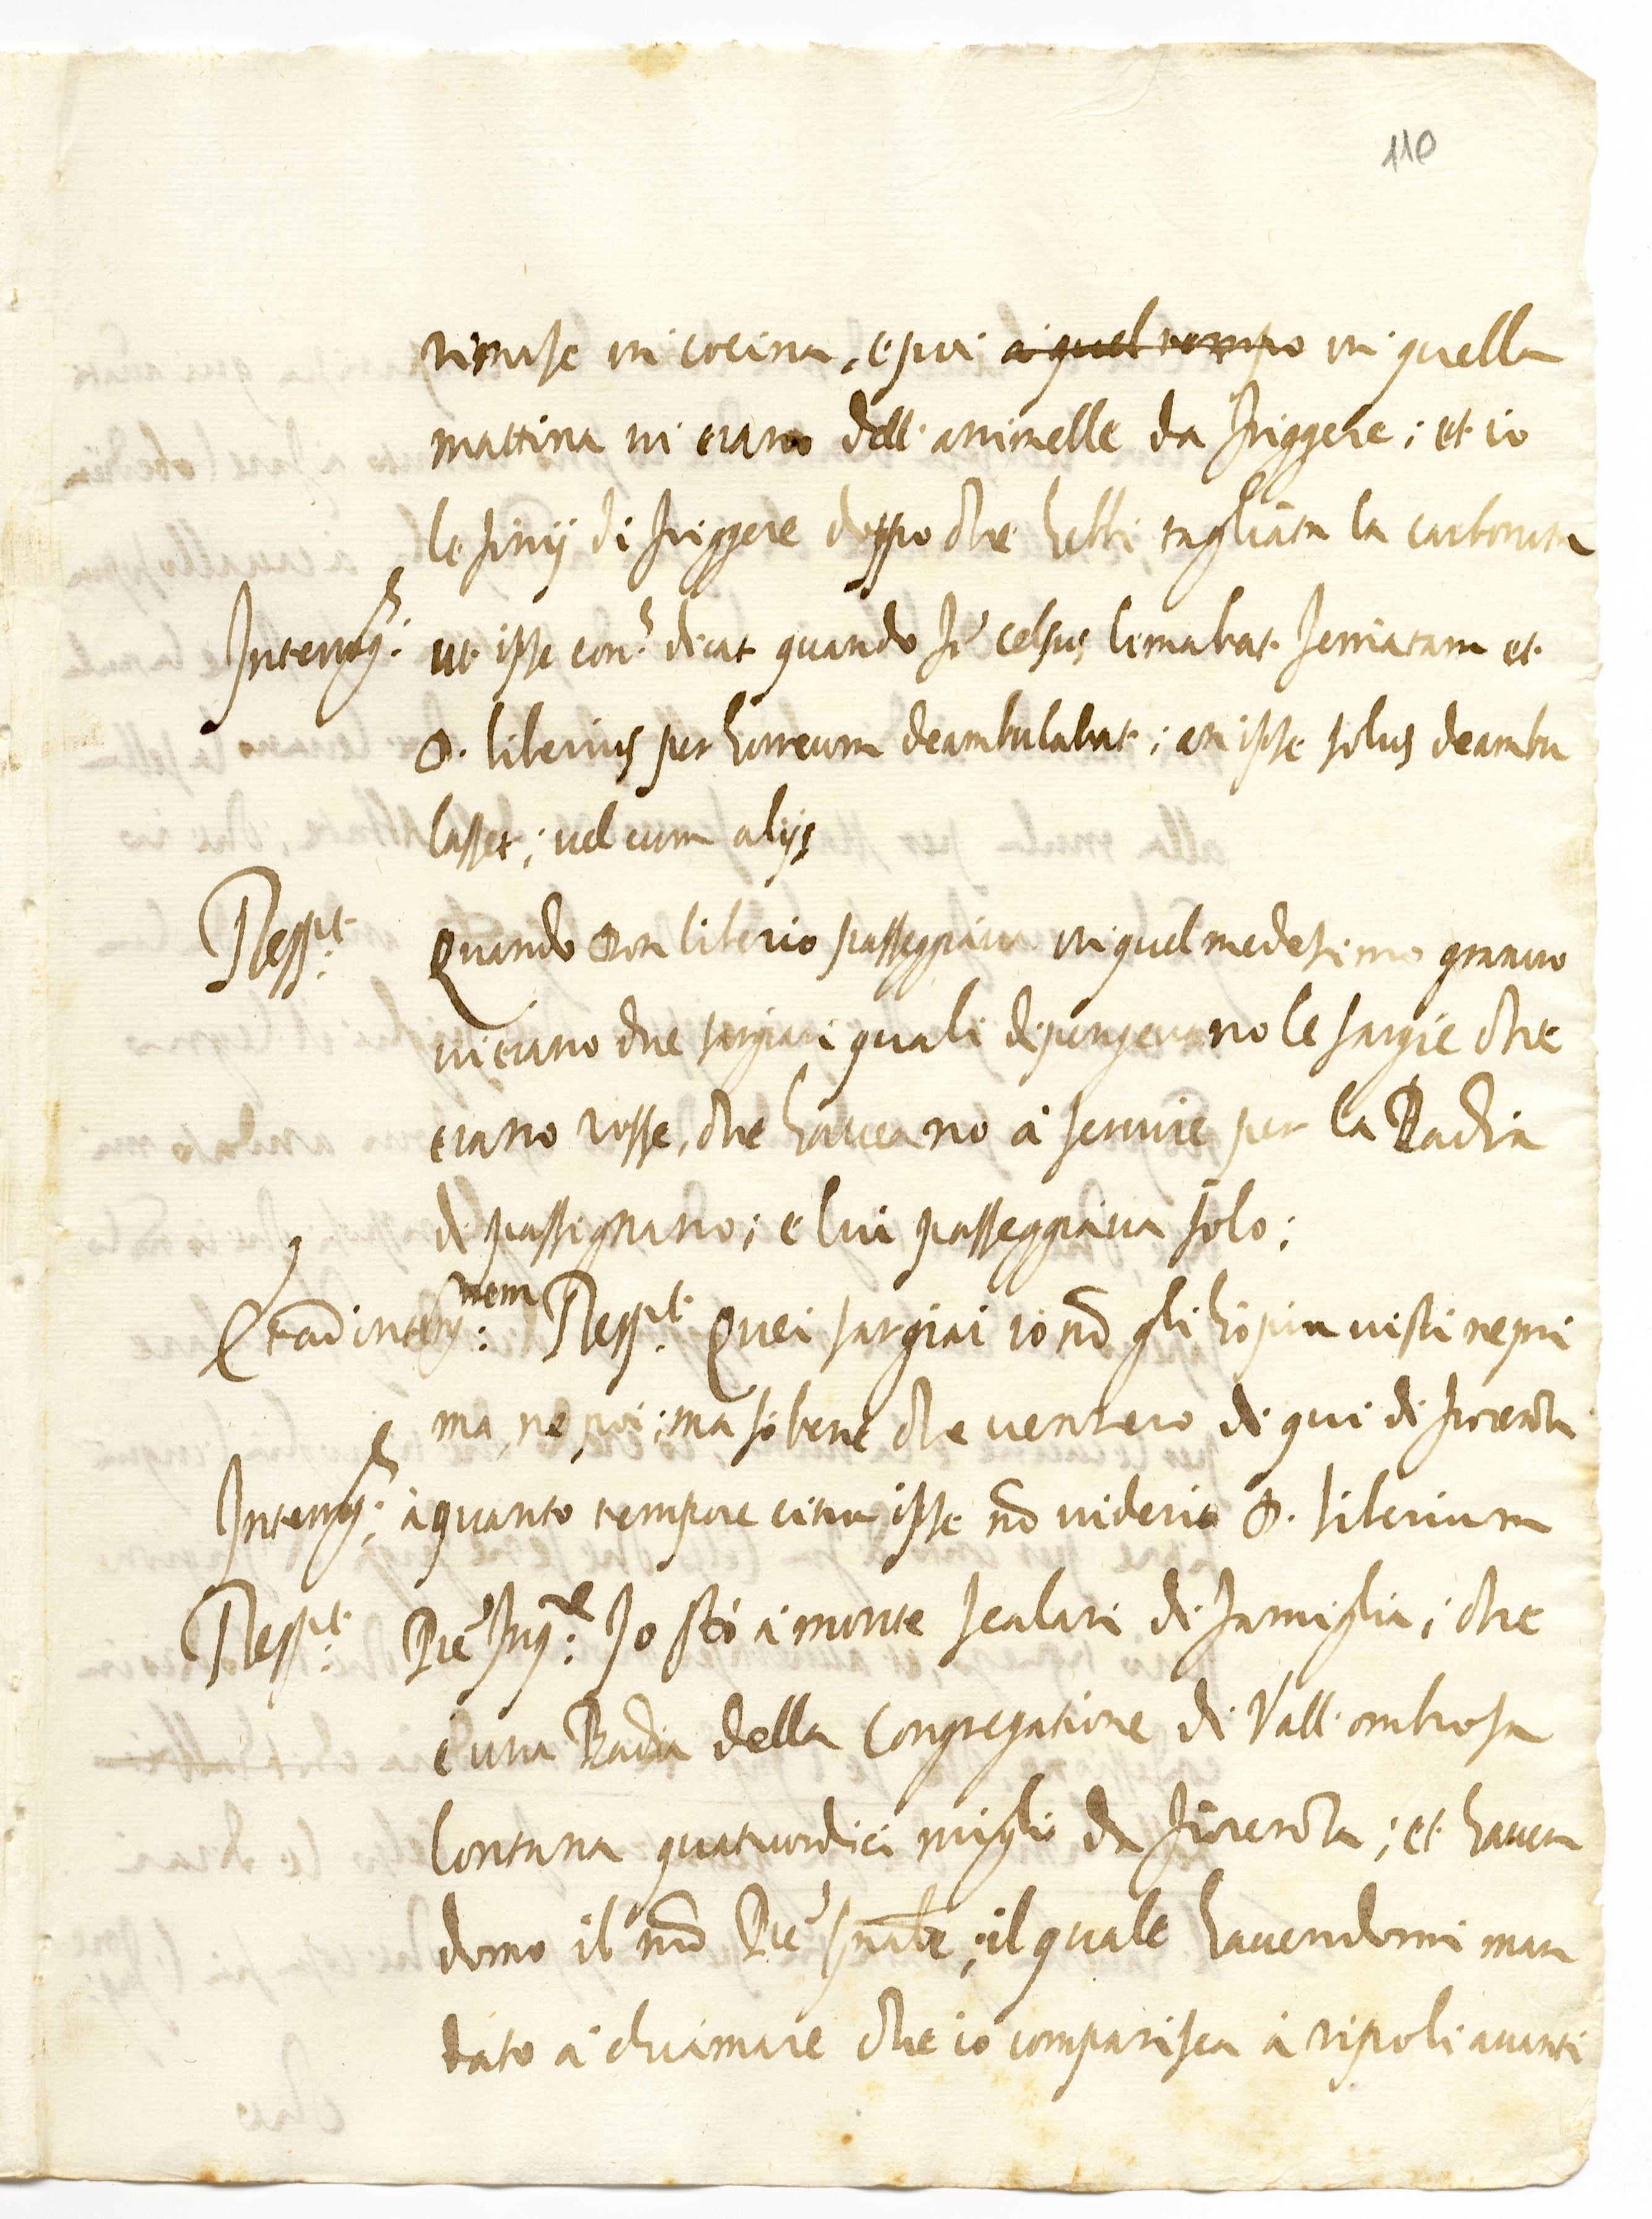 110
rimase in cocina, e poi a quel tempo in quella
mattina ui erano dell'animelle da friggere; et io
le finij di friggere doppo che hebbi tagliata la carbonata
Interrog.s ut ipse con.s dicat quando fr. Celsus limabat ferriatam et
D. liberius per horreum deambulabat; an ipse solus deambu
lasset; uel cum alijs
Resp.t Quando Don liberio passeggiaua in quel medesimo granaro
ui erano due sargiai quali dipingeuano le sargie che
erano rosse, che haueano à seruire per la Badia
di passignano; e lui passeggiaua solo;
Et ad interrog.nem Resp.t Quei sargiai io nō gli hò piu uisti ne pri
ma, ne poi; ma sò bene che uennero di qui di fiorenza
Interrog.s à quanto tempore citra ipse nō uiderit D. liberium
Resp.t Pre Inq.re Io stò à monte scalari di famiglia; che
è una Badia della Congregatione di Vall'ombrosa
lontana quatuordici miglia da fiorenza; et hauen
domo il nro Pre Gnale; il quale hauendomi man
dato à chiamare che io comparisca à ripoli auanti